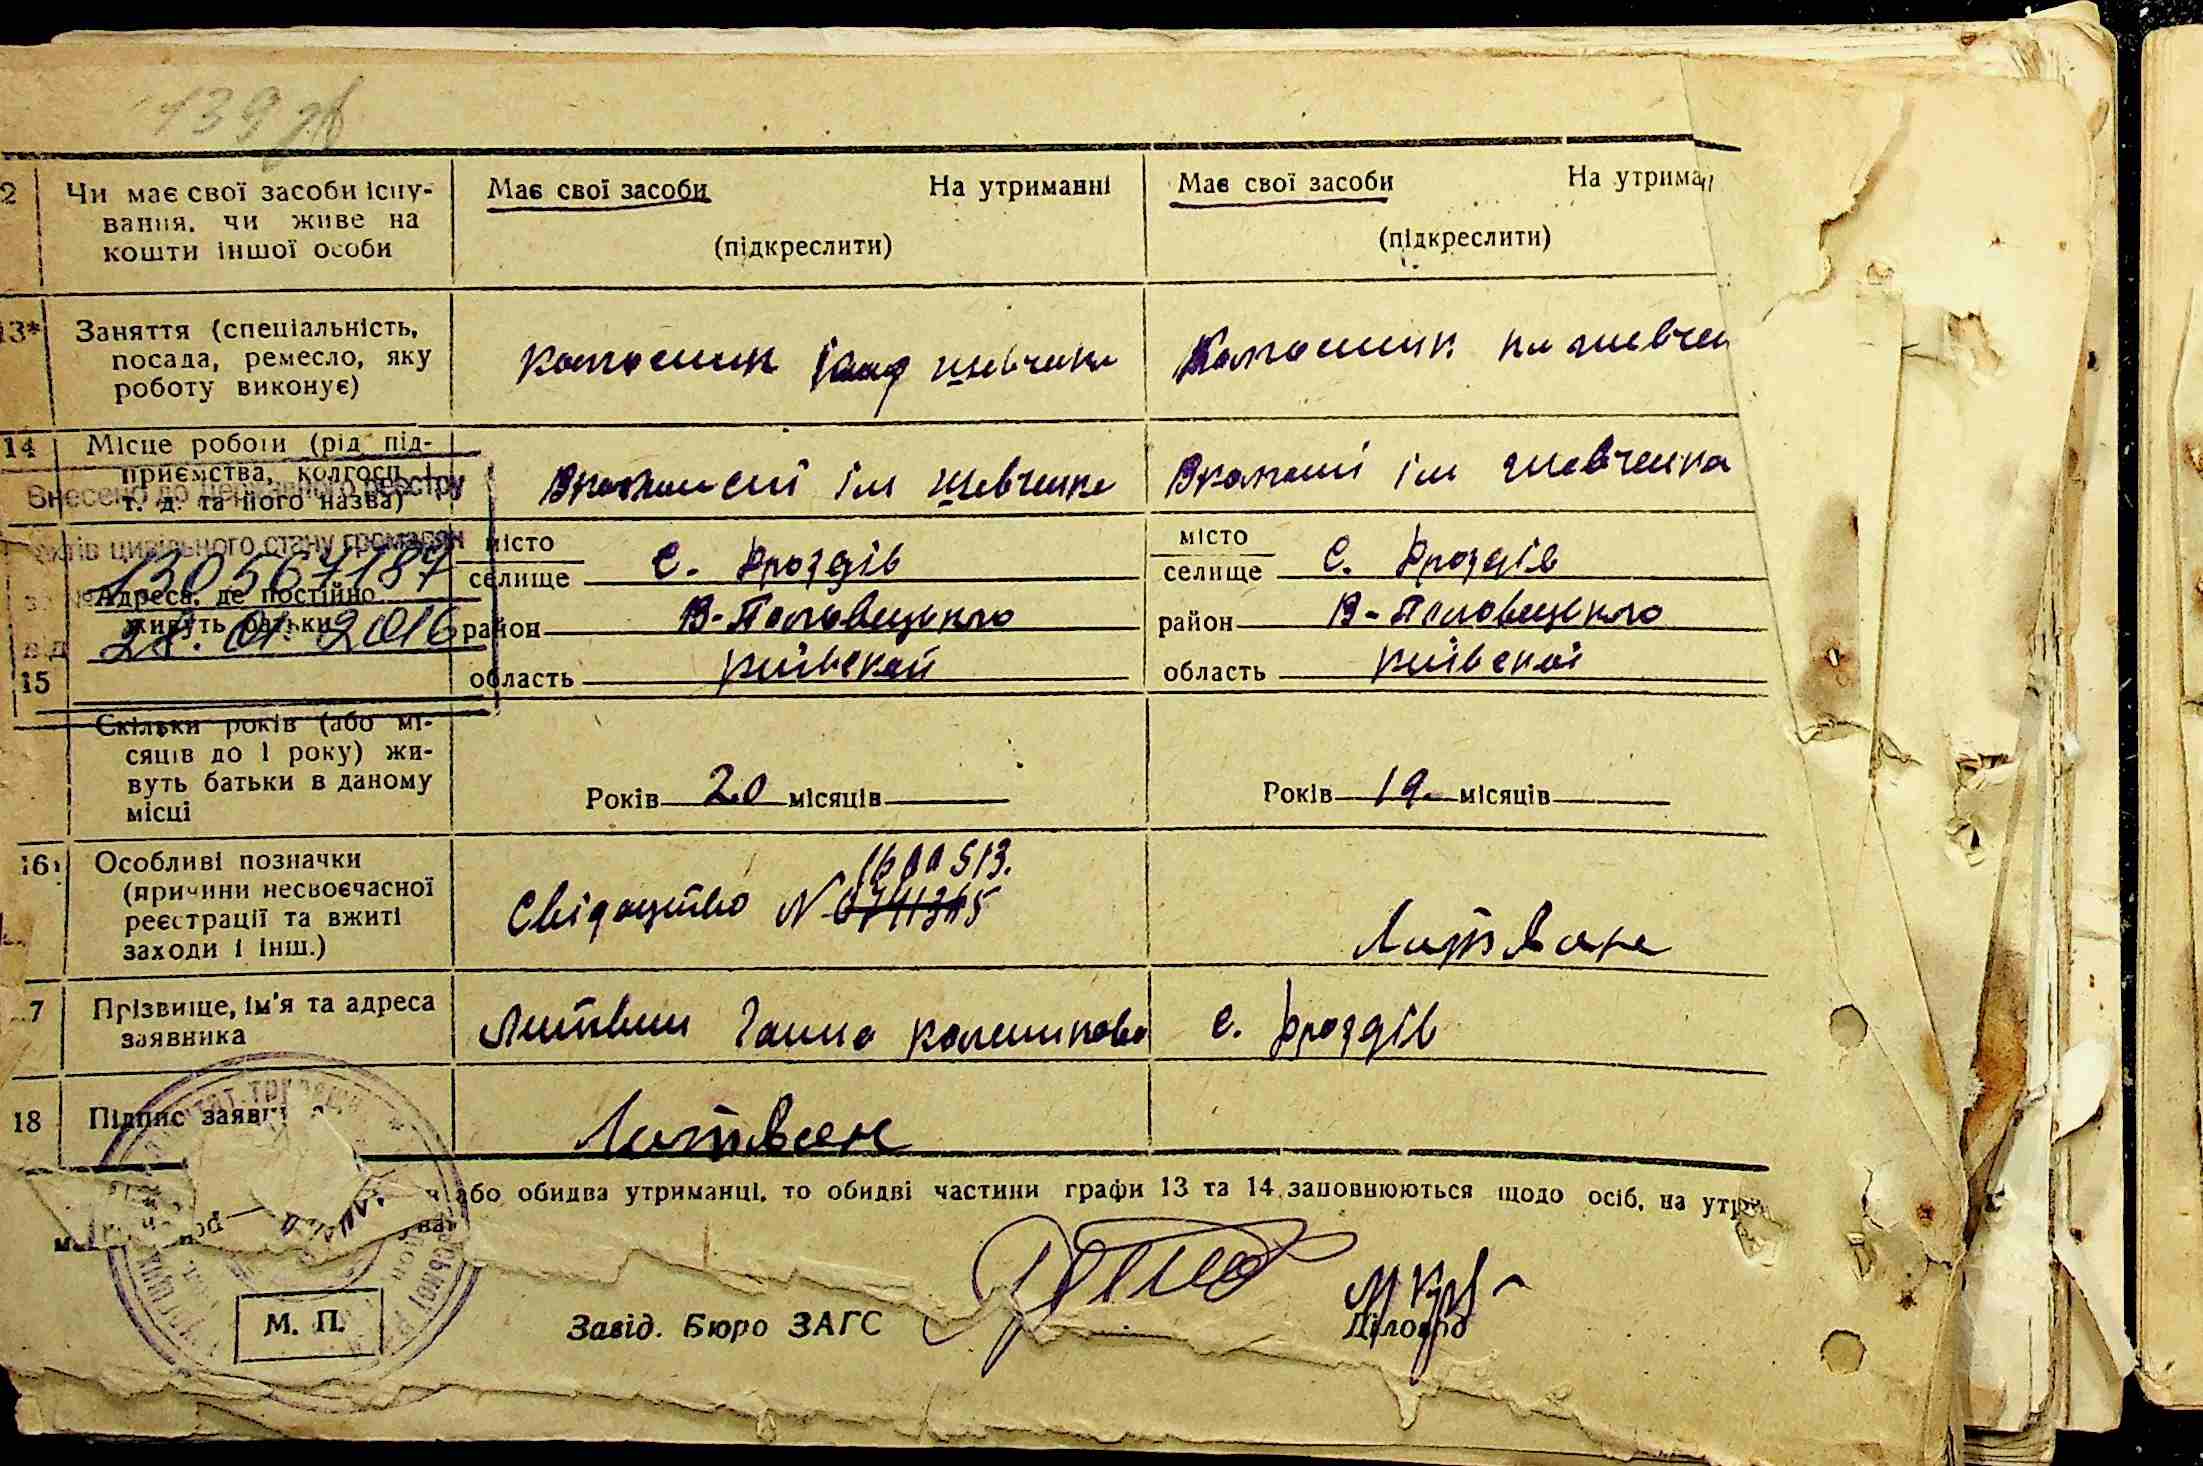 139
2 Чи має свої засоби існу-
вання, чи живе на
кошти іншої особи
Має свої засоби На утриманні
(підкреслити)
Має свої засоби На утрима
(підкреслити)
13* Заняття (спеціальність,
посада, ремесло, яку
роботу виконує)
колгоспник шевченка
Колгоспник шевчен
14 Місце роботи (рід під-
приємства, колгосп і
т. д. та його назва)
В колгоспі ім шевченка
В колгоспі ім шевченка
Внесено до Державного реєстру
актів цивільного стану громадян
за № 130567187
від 28.01.2016
15 Адреса, де постійно
живуть батьки
місто
селище с. Дроздів
район В-Половецького
область київської
місто
селище с. Дроздів
район В-Половецького
область київської
Скільки років (або мі-
сяців до 1 року) жи-
вуть батьки в даному
місці
Років 20 місяців
Років 19 місяців
16 Особливі позначки
(причини несвоєчасної
реєстрації та вжиті
заходи і інш.)
Свідоцтво №
Литвин
7 Прізвище, ім'я та адреса
заявника
Литвин Ганна с. Дроздів
18 Підпис
Литвин
або обидва утриманці, то обидві частини графи 13 та 14 заповнюються щодо осіб, на
М. П.
Завід. Бюро ЗАГС
Діловод